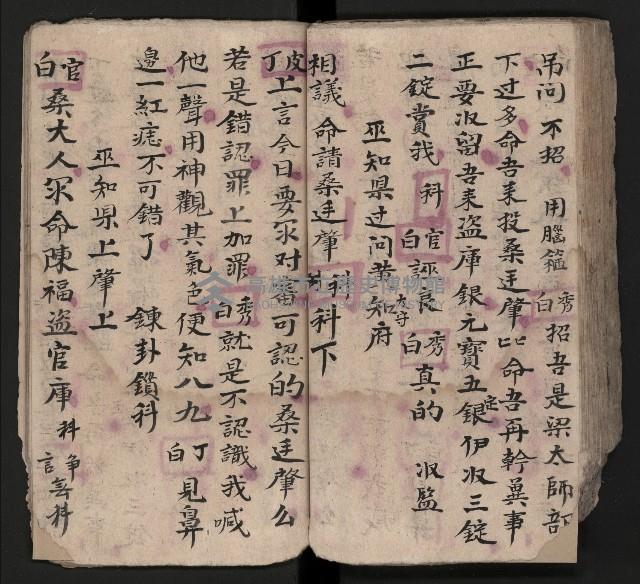 吊问不招 用腦箍 秀白 招吾是梁太師部
下过多命吾来投桑廷肇比命吾再幹異事
正要収留吾来盗庫銀元寶五銀定伊収三錠
二錠賞我 科 官白 誣良太守 秀白 真的 収監
巫知県过问黄知府
相議命請桑廷肇 科 科下
皮丁上言今日要求对審可認的桑廷肇么
若是錯認罪上加罪 秀白 就是不認識我喊
他一聲用神觀其氣色便知八九 丁白 見鼻
邊一紅痣不可錯了 錬卦鎖科
巫知県上肇上
官白桑大人求命陳福盗官庫 科 争言 科
高雄市立歷史博物館